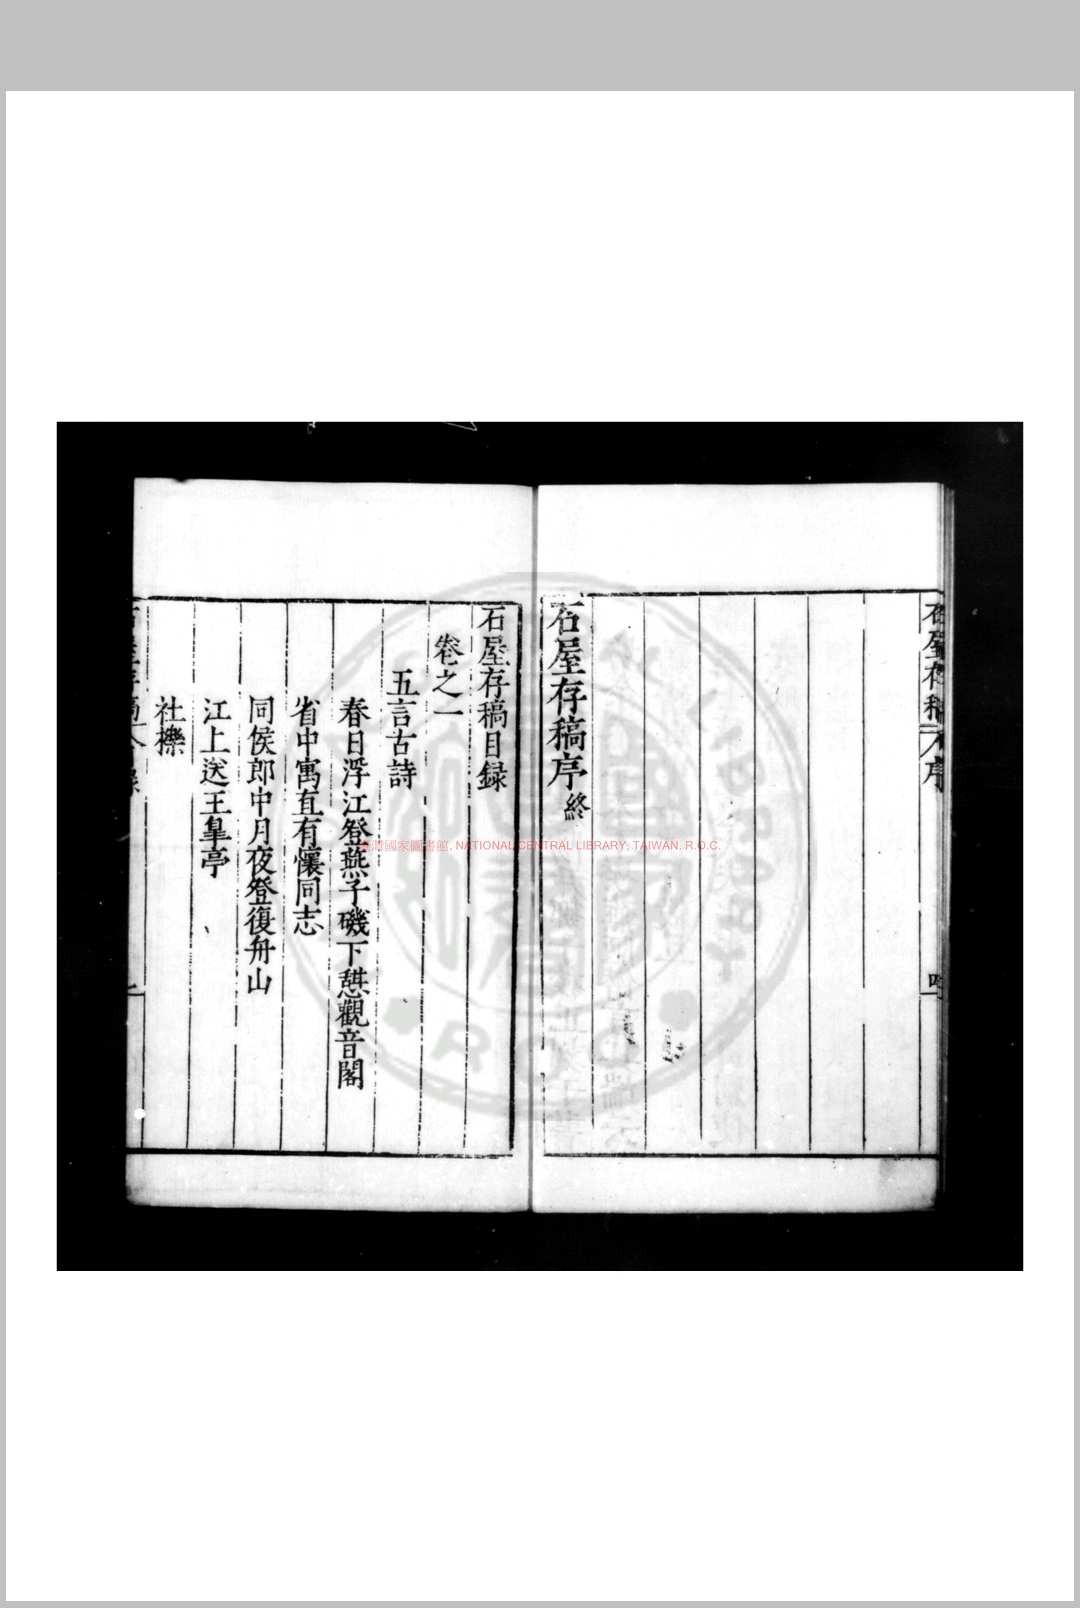 石屋存稿 序
石屋存稿序終
石屋存稿目録
卷之一
五言古詩
春日浮江登燕子磯下憇觀音閣
省中寓直有懷同志
同侯郎中月夜登復舟山
江上送王皇亭
社櫟
臺灣國家圖書館, NATIONAL CENTRAL LIBRARY, TAIWAN, R.O.C.